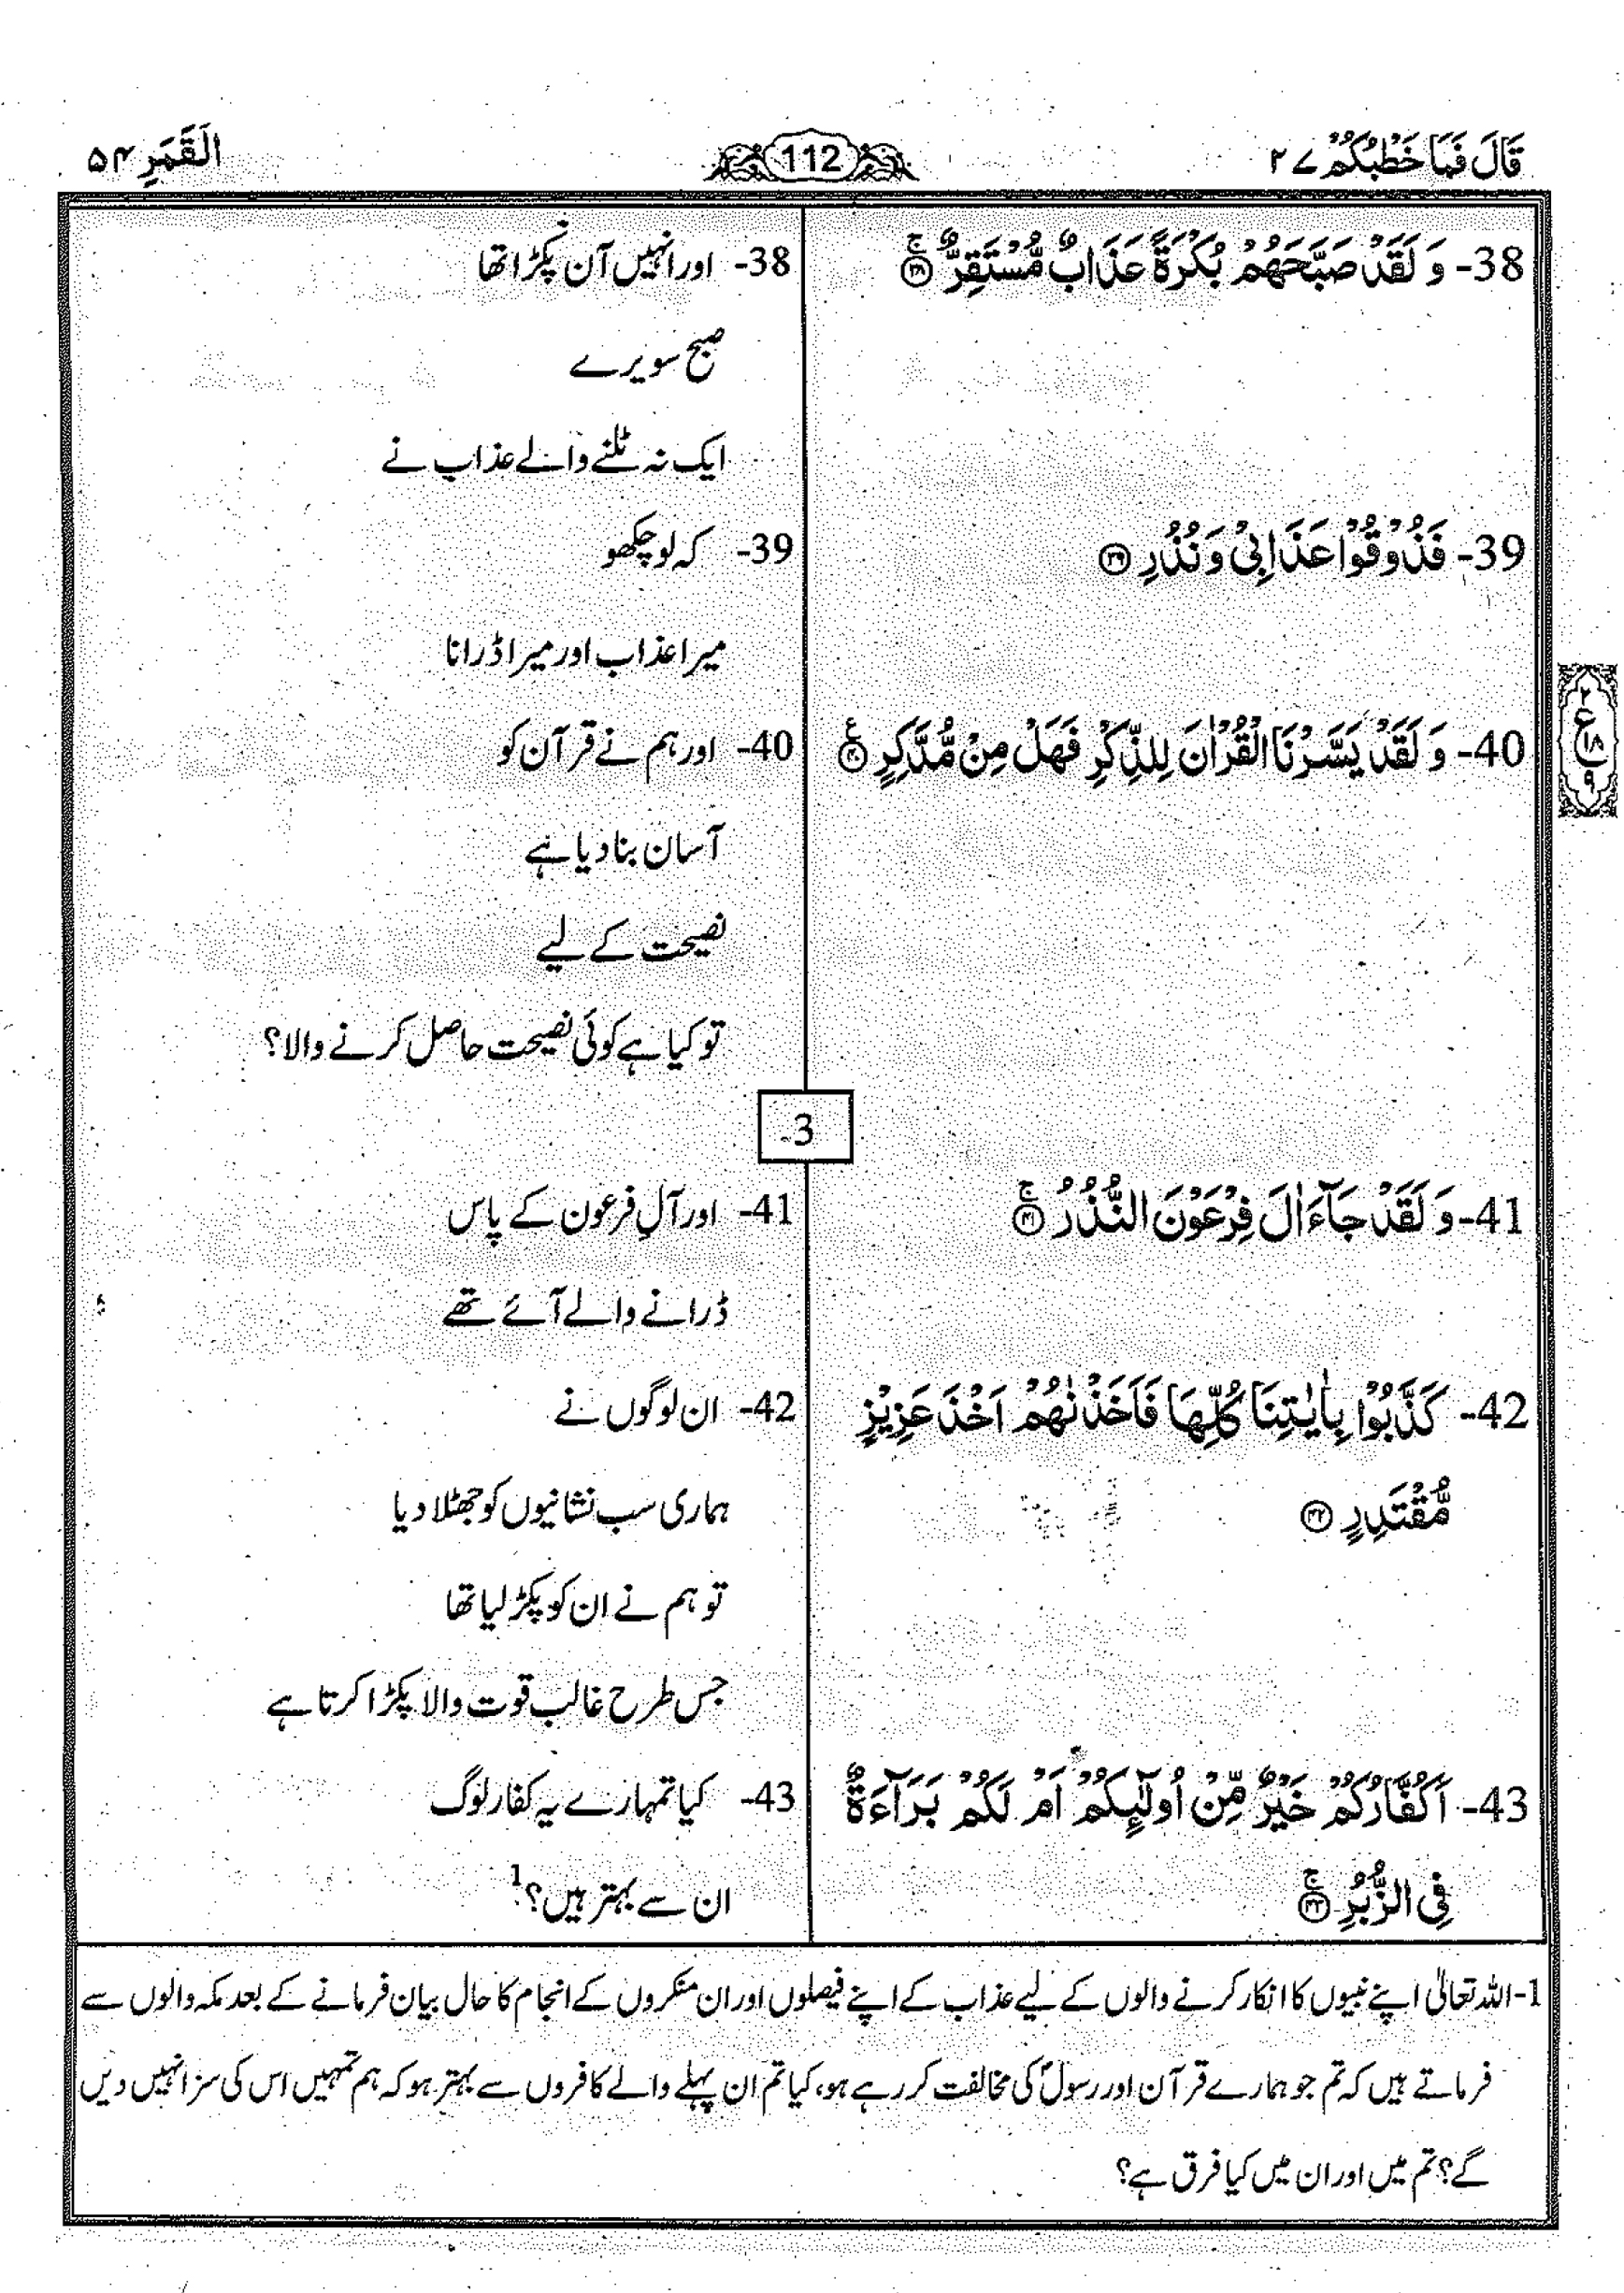 قَالَ فَمَا خَطْبُكُمْ ۲۷
112
اَلْقَمَرِ ۵۴
38- وَ لَقَدْ صَبَّحَهُمْ بُكْرَةً عَذَابٌ مُّسْتَقِرٌّ ۚ ﴿۳۸﴾
38- اور انہیں آن پکڑا تھا
صبح سویرے
ایک نہ ٹلنے والے عذاب نے
39- فَذُوْقُوْا عَذَابِىْ وَ نُذُرِ ﴿۳۹﴾
39- کہ لو چکھو
میرا عذاب اور میرا ڈرانا
40- وَ لَقَدْ يَسَّرْنَا الْقُرْاٰنَ لِلذِّكْرِ فَهَلْ مِنْ مُّدَّكِرٍ ﴿۴۰﴾ ع
۲
ع
۱۸
۹
40- اور ہم نے قرآن کو
آسان بنا دیا ہے
نصیحت کے لیے
تو کیا ہے کوئی نصیحت حاصل کرنے والا؟
3-
41- وَ لَقَدْ جَآءَ اٰلَ فِرْعَوْنَ النُّذُرُ ۚ ﴿۴۱﴾
41- اور آلِ فرعون کے پاس
ڈرانے والے آئے تھے
42- كَذَّبُوْا بِاٰيٰتِنَا كُلِّهَا فَاَخَذْنٰهُمْ اَخْذَ عَزِيْزٍ
مُّقْتَدِرٍ ﴿۴۲﴾
42- ان لوگوں نے
ہماری سب نشانیوں کو جھٹلا دیا
تو ہم نے ان کو پکڑ لیا تھا
جس طرح غالب قوت والا پکڑا کرتا ہے
43- اَكُفَّارُكُمْ خَيْرٌ مِّنْ اُولٰٓئِكُمْ اَمْ لَكُمْ بَرَآءَةٌ
فِى الزُّبُرِ ۚ ﴿۴۳﴾
43- کیا تمہارے یہ کفار لوگ
ان سے بہتر ہیں؟1
1- اللہ تعالیٰ اپنے نبیوں کا انکار کرنے والوں کے لیے عذاب کے اپنے فیصلوں اور ان منکروں کے انجام کا حال بیان فرمانے کے بعد مکہ والوں سے
فرماتے ہیں کہ تم جو ہمارے قرآن اور رسولؐ کی مخالفت کر رہے ہو، کیا تم ان پہلے والے کافروں سے بہتر ہو کہ ہم تمہیں اس کی سزا نہیں دیں
گے؟ تم میں اور ان میں کیا فرق ہے؟